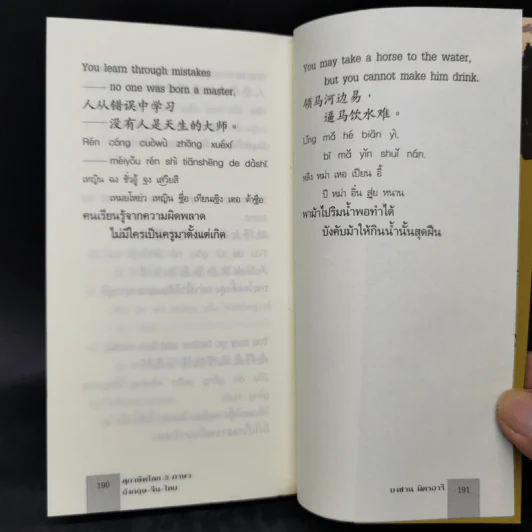 You learn through mistakes
—— no one was born a master.
人从错误中学习
——没有人是天生的大师。
Rén cóng cuòwù zhōng xuéxí
—— méiyǒu rén shì tiānshēng de dàshī.
เหญิน ฉง ชั่วอู้ จง เสวียสี
คนเรียนรู้จากความผิดพลาด
ไม่มีใครเป็นครูมาตั้งแต่เกิด
190
สุภาษิตโลก 3 ภาษา
อังกฤษ-จีน-ไทย
You may take a horse to the water,
but you cannot make him drink.
领马河边易，
逼马饮水难。
Lǐng mǎ hé biān yì,
bī mǎ yǐn shuǐ nán.
หลิง หม่า เหอ เปียน อี้
ปี หม่า อิ่น สุ่ย หนาน
พาม้าไปริมน้ำพอทำได้
บังคับม้าให้กินน้ำนั้นสุดฝืน
191